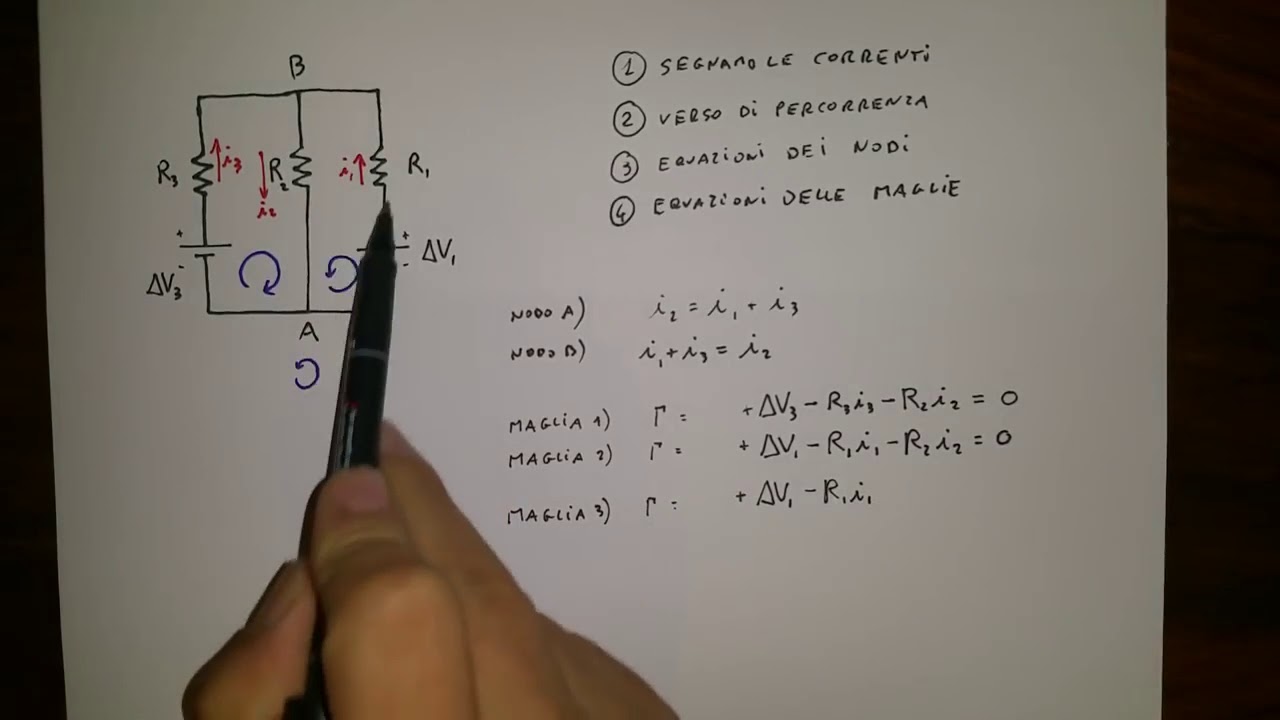 B
R₃ i₃ R₂ i₁ R₁
i₂
+ +
ΔV₃ - - ΔV₁
A
① SEGNAMO LE CORRENTI
② VERSO DI PERCORRENZA
③ EQUAZIONI DEI NODI
④ EQUAZIONI DELLE MAGLIE
NODO A) i₂ = i₁ + i₃
NODO B) i₁ + i₃ = i₂
MAGLIA 1) Γ = + ΔV₃ - R₃i₃ - R₂i₂ = 0
MAGLIA 2) Γ = + ΔV₁ - R₁i₁ - R₂i₂ = 0
MAGLIA 3) Γ = + ΔV₁ - R₁i₁